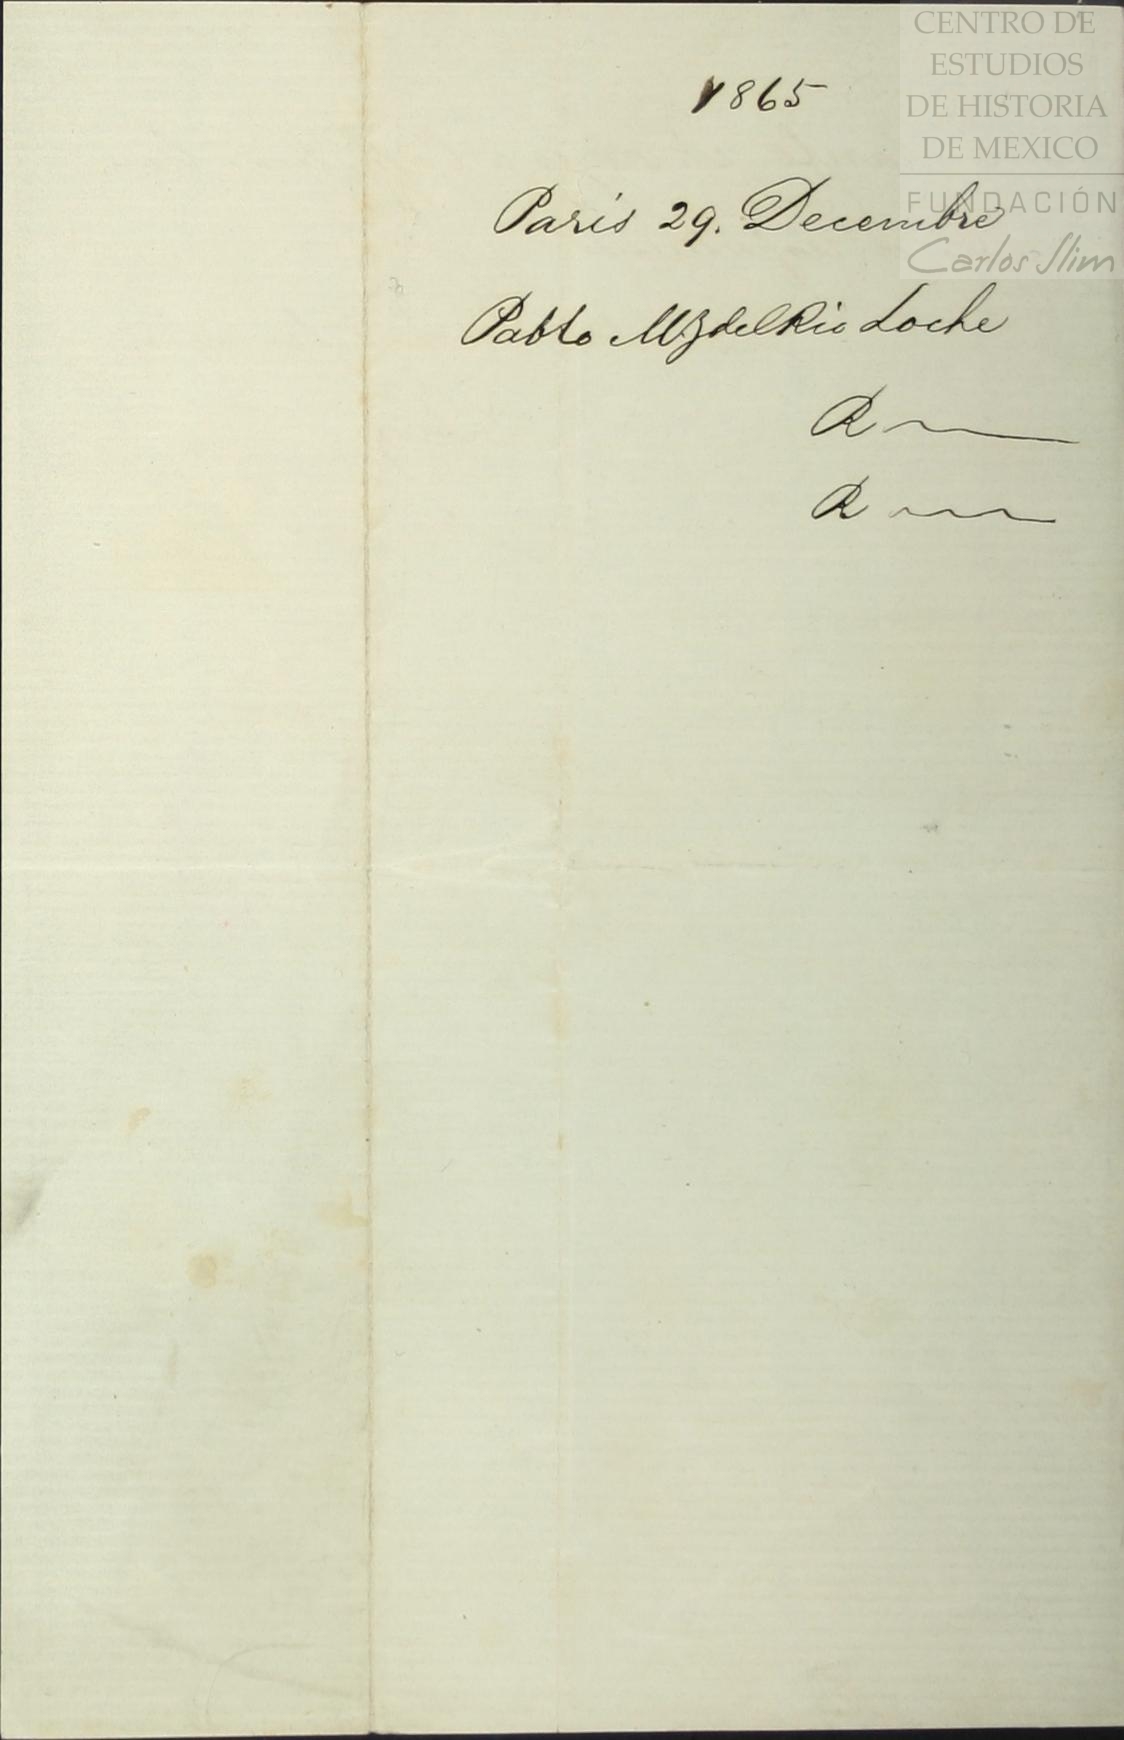 CENTRO DE
ESTUDIOS
DE HISTORIA
DE MEXICO
FUNDACIÓN
Carlos Slim
1865
Paris 29. Decembre
Pablo Mz del Rio Loche
R
R